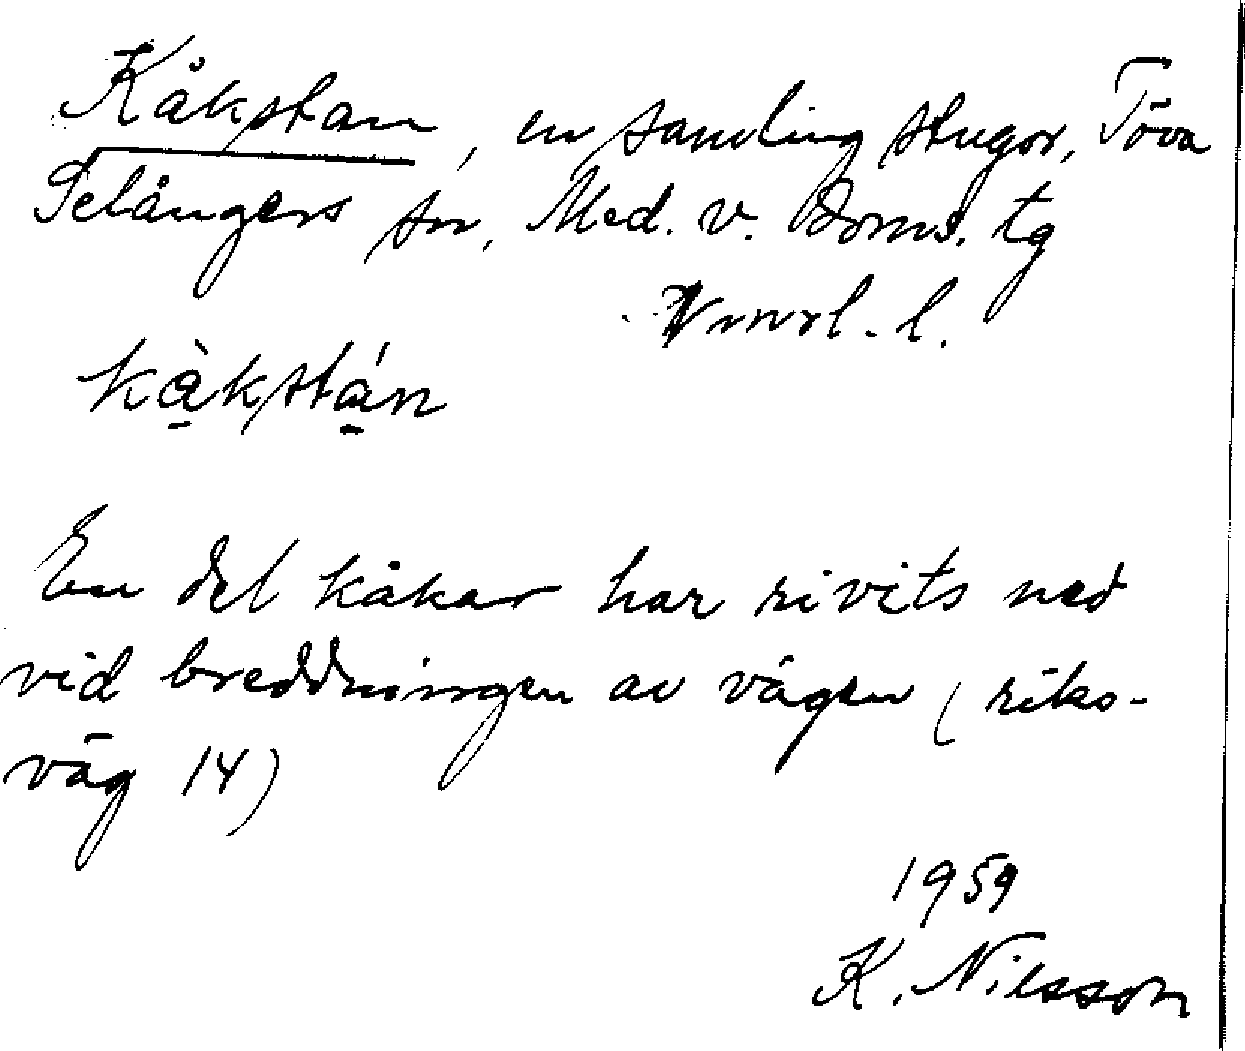 Kåkstan, en samling stugor, Töva
Selångers sn, Med. v. Doms. tg
Vnorl. l.
kåkstán
En del kåkar har rivits ned
vid breddningen av vägen (riks-
väg 14)
1959
K. Nilsson